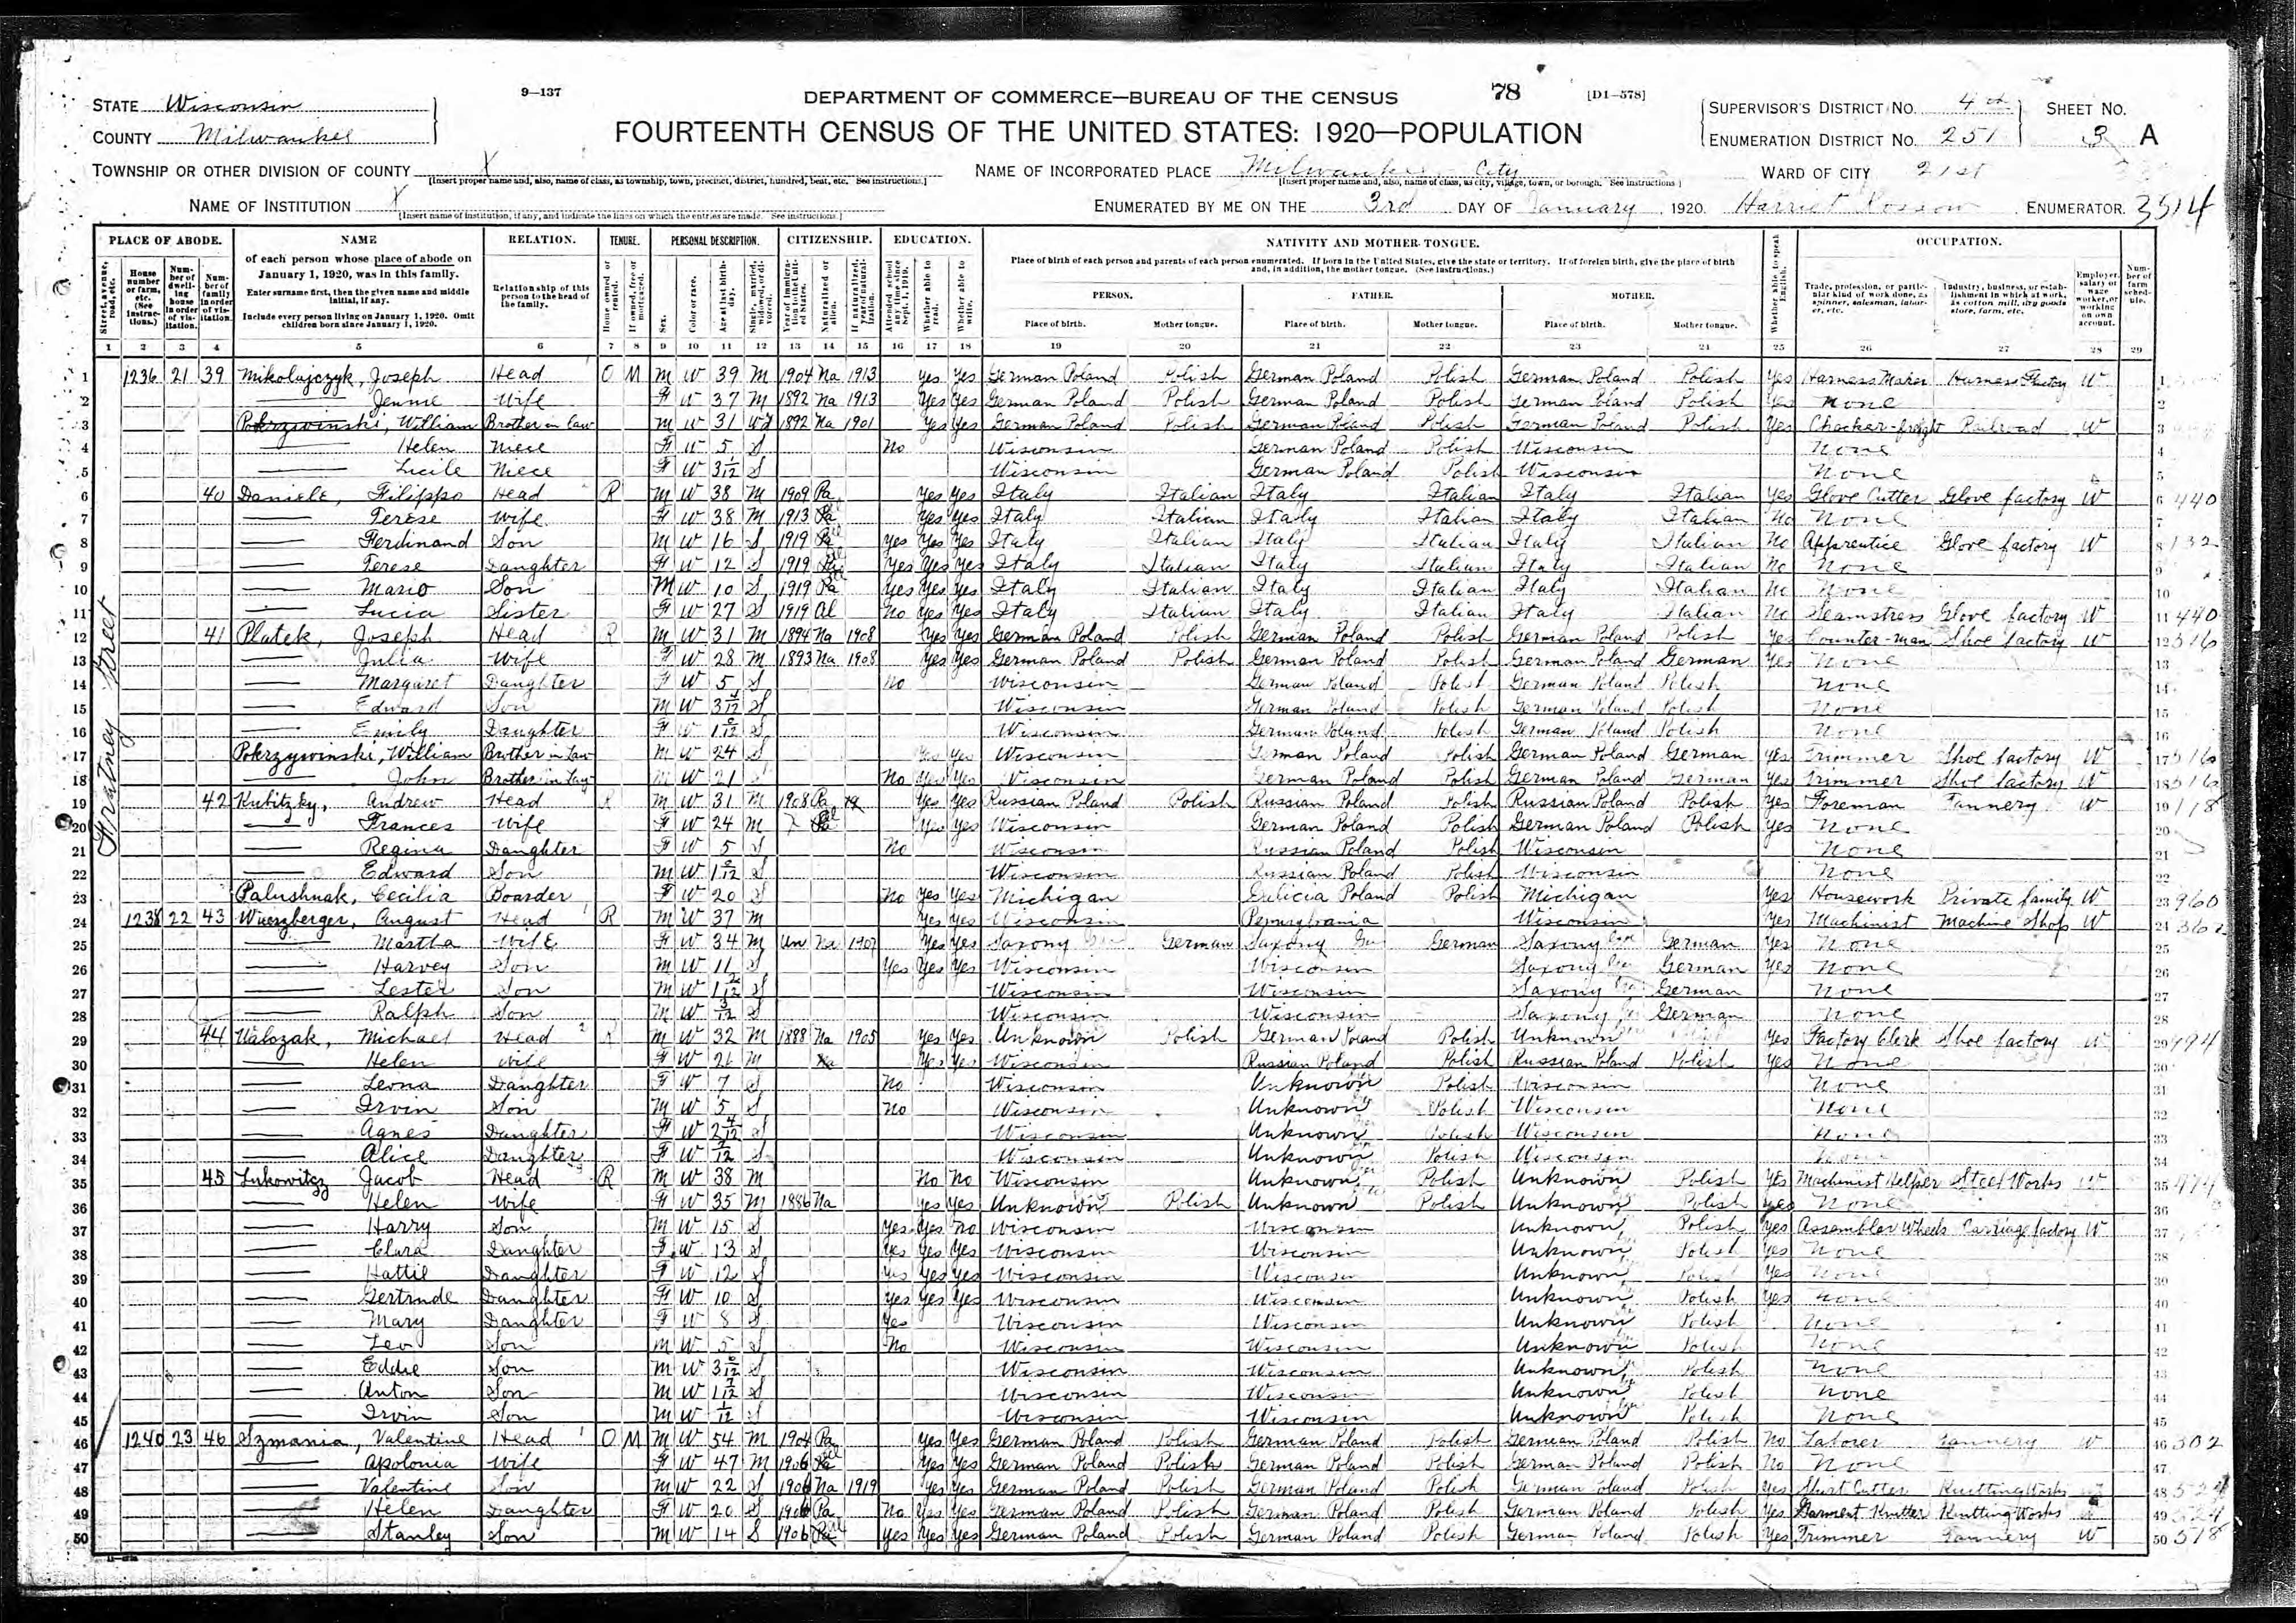 9—137
DEPARTMENT OF COMMERCE—BUREAU OF THE CENSUS
78
[D1-578]
STATE Wisconsin
COUNTY Milwaukee
FOURTEENTH CENSUS OF THE UNITED STATES: 1920—POPULATION
SUPERVISOR'S DISTRICT NO. 4th
SHEET NO.
ENUMERATION DISTRICT NO. 251
3 A
TOWNSHIP OR OTHER DIVISION OF COUNTY X
[Insert proper name and, also, name of class, as township, town, precinct, district, hundred, beat, etc. See instructions.]
NAME OF INCORPORATED PLACE Milwaukee City
[Insert proper name and, also, name of class, as city, village, town, or borough. See instructions.]
WARD OF CITY 21st
NAME OF INSTITUTION X
[Insert name of institution, if any, and indicate the lines on which the entries are made. See instructions.]
ENUMERATED BY ME ON THE 3rd DAY OF January, 1920. Harriet Rossow, ENUMERATOR. 3514
PLACE OF ABODE. NAME RELATION. TENURE. PERSONAL DESCRIPTION. CITIZENSHIP. EDUCATION. NATIVITY AND MOTHER TONGUE. OCCUPATION.
of each person whose place of abode on January 1, 1920, was in this family.
Enter surname first, then the given name and middle initial, if any.
Include every person living on January 1, 1920. Omit children born since January 1, 1920.
Relationship of this person to the head of the family.
Place of birth of each person and parents of each person enumerated. If born in the United States, give the state or territory. If of foreign birth, give the place of birth and, in addition, the mother tongue. (See instructions.)
PERSON. FATHER. MOTHER.
Place of birth. Mother tongue. Place of birth. Mother tongue. Place of birth. Mother tongue.
1 2 3 4 5 6 7 8 9 10 11 12 13 14 15 16 17 18 19 20 21 22 23 24 25 26 27 28 29
Street
1 1236 21 39 Mikolajczyk, Joseph Head O M M W 39 M 1904 Na 1913 Yes Yes German Poland Polish German Poland Polish German Poland Polish Yes Harness Maker Harness Factory W
2 Jennie Wife F W 37 M 1892 Na 1913 Yes Yes German Poland Polish German Poland Polish German Poland Polish Yes None
3 Pokrzywinski, William Brother in law M W 31 Wd 1892 Na 1901 Yes Yes German Poland Polish German Poland Polish German Poland Polish Yes Checker-freight Railroad W
4 Helen Niece F W 5 S No Wisconsin German Poland Polish Wisconsin None
5 Lucile Niece F W 3 1/12 S Wisconsin German Poland Polish Wisconsin None
6 40 Daniele, Filippo Head R M W 38 M 1909 Pa Yes Yes Italy Italian Italy Italian Italy Italian Yes Glove Cutter Glove factory W 440
7 Terese Wife F W 38 M 1913 Pa Yes Yes Italy Italian Italy Italian Italy Italian No None
8 Ferdinand Son M W 16 S 1919 Pa Yes Yes Yes Italy Italian Italy Italian Italy Italian No Apprentice Glove factory W 132
9 Terese Daughter F W 12 S 1919 Yes Yes Yes Italy Italian Italy Italian Italy Italian No None
10 Mario Son M W 10 S 1919 Pa Yes Yes Yes Italy Italian Italy Italian Italy Italian No None
11 Lucia Sister F W 27 S 1919 Al No Yes Yes Italy Italian Italy Italian Italy Italian No Seamstress Glove factory W 440
12 41 Platek, Joseph Head R M W 31 M 1894 Na 1908 Yes Yes German Poland Polish German Poland Polish German Poland Polish Yes Counter-man Shoe factory W 516
13 Julia Wife F W 28 M 1893 Na 1908 Yes Yes German Poland Polish German Poland Polish German Poland German Yes None
14 Margaret Daughter F W 5 S No Wisconsin German Poland Polish German Poland Polish None
15 Edward Son M W 3 4/12 S Wisconsin German Poland Polish German Poland Polish None
16 Emily Daughter F W S Wisconsin German Poland Polish German Poland Polish None
17 Pokrzywinski, William Brother in Law M W 24 S Yes Yes Wisconsin German Poland Polish German Poland German Yes Trimmer Shoe factory W 516
18 John Brother in Law M W 21 S No Yes Yes Wisconsin German Poland Polish German Poland German Yes Trimmer Shoe factory W 516
19 42 Kubitzky, Andrew Head R M W 31 M 1908 Pa Yes Yes Russian Poland Polish Russian Poland Polish Russian Poland Polish Yes Foreman Tannery W 118
20 Frances Wife F W 24 M Yes Yes Wisconsin German Poland Polish German Poland Polish Yes None
21 Regina Daughter F W 5 S No Wisconsin Russian Poland Polish Wisconsin None
22 Edward Son M W S Wisconsin Russian Poland Polish Wisconsin None
23 Palushnak, Cecilia Boarder F W 20 S No Yes Yes Michigan Galicia Poland Polish Michigan Yes Housework Private family W 960
24 1238 22 43 Wuerzberger, August Head R M W 37 M Yes Yes Wisconsin Pennsylvania Wisconsin Yes Machinist Machine Shop W
25 Martha Wife F W 34 M Un Na 1907 Yes Yes Saxony German Saxony German Saxony German Yes None
26 Harvey Son M W 11 S Yes Yes Yes Wisconsin Wisconsin Saxony German Yes None
27 Lester Son M W S Wisconsin Wisconsin Saxony German None
28 Ralph Son M W 3/12 S Wisconsin Wisconsin Saxony German None
29 44 Walczak, Michael Head R M W 32 M 1888 Na 1905 Yes Yes Unknown Polish German Poland Polish Unknown Yes Factory Clerk Shoe factory W 494
30 Helen Wife F W 26 M Na Yes Yes Wisconsin Russian Poland Polish Russian Poland Polish Yes None
31 Leona Daughter F W 7 S No Wisconsin Unknown Polish Wisconsin None
32 Irvin Son M W 5 S No Wisconsin Unknown Polish Wisconsin None
33 Agnes Daughter F W 2 4/12 S Wisconsin Unknown Polish Wisconsin None
34 Alice Daughter F W S Wisconsin Unknown Polish Wisconsin None
35 45 Lukowitz Jacob Head R M W 38 M No No Wisconsin Unknown Polish Unknown Polish Yes Machinist Helper Steel Works W
36 Helen Wife F W 35 M 1886 Na Yes Yes Unknown Polish Unknown Polish Unknown Polish Yes None
37 Harry Son M W 15 S Yes Yes No Wisconsin Wisconsin Unknown Polish Yes Assembler Wheels Carriage factory W
38 Clara Daughter F W 13 S Yes Yes Yes Wisconsin Wisconsin Unknown Polish Yes None
39 Hattie Daughter F W 12 S Yes Yes Yes Wisconsin Wisconsin Unknown Polish Yes None
40 Gertrude Daughter F W 10 S Yes Yes Yes Wisconsin Wisconsin Unknown Polish Yes None
41 Mary Daughter F W 8 S Yes Wisconsin Wisconsin Unknown Polish None
42 Leo Son M W 5 S No Wisconsin Wisconsin Unknown Polish None
43 Eddie Son M W S Wisconsin Wisconsin Unknown Polish None
44 Anton Son M W 1 7/12 S Wisconsin Wisconsin Unknown Polish None
45 Irvin Son M W 1/12 S Wisconsin Wisconsin Unknown Polish None
46 1240 23 46 Szmania, Valentine Head O M M W 54 M 1904 Pa Yes Yes German Poland Polish German Poland Polish German Poland Polish No Laborer Tannery W 302
47 Apolonia Wife F W 47 M 1906 Pa Yes Yes German Poland Polish German Poland Polish German Poland Polish No None
48 Valentine Son M W 22 S 1906 Na 1919 Yes Yes German Poland Polish German Poland Polish German Poland Polish Yes Shirt Cutter Knitting Works 524
49 Helen Daughter F W 20 S 1906 Pa No Yes Yes German Poland Polish German Poland Polish German Poland Polish Yes Garment Knitter Knitting Works 524
50 Stanley Son M W 14 S 1906 Pa Yes Yes Yes German Poland Polish German Poland Polish German Poland Polish Yes Trimmer Tannery W 518